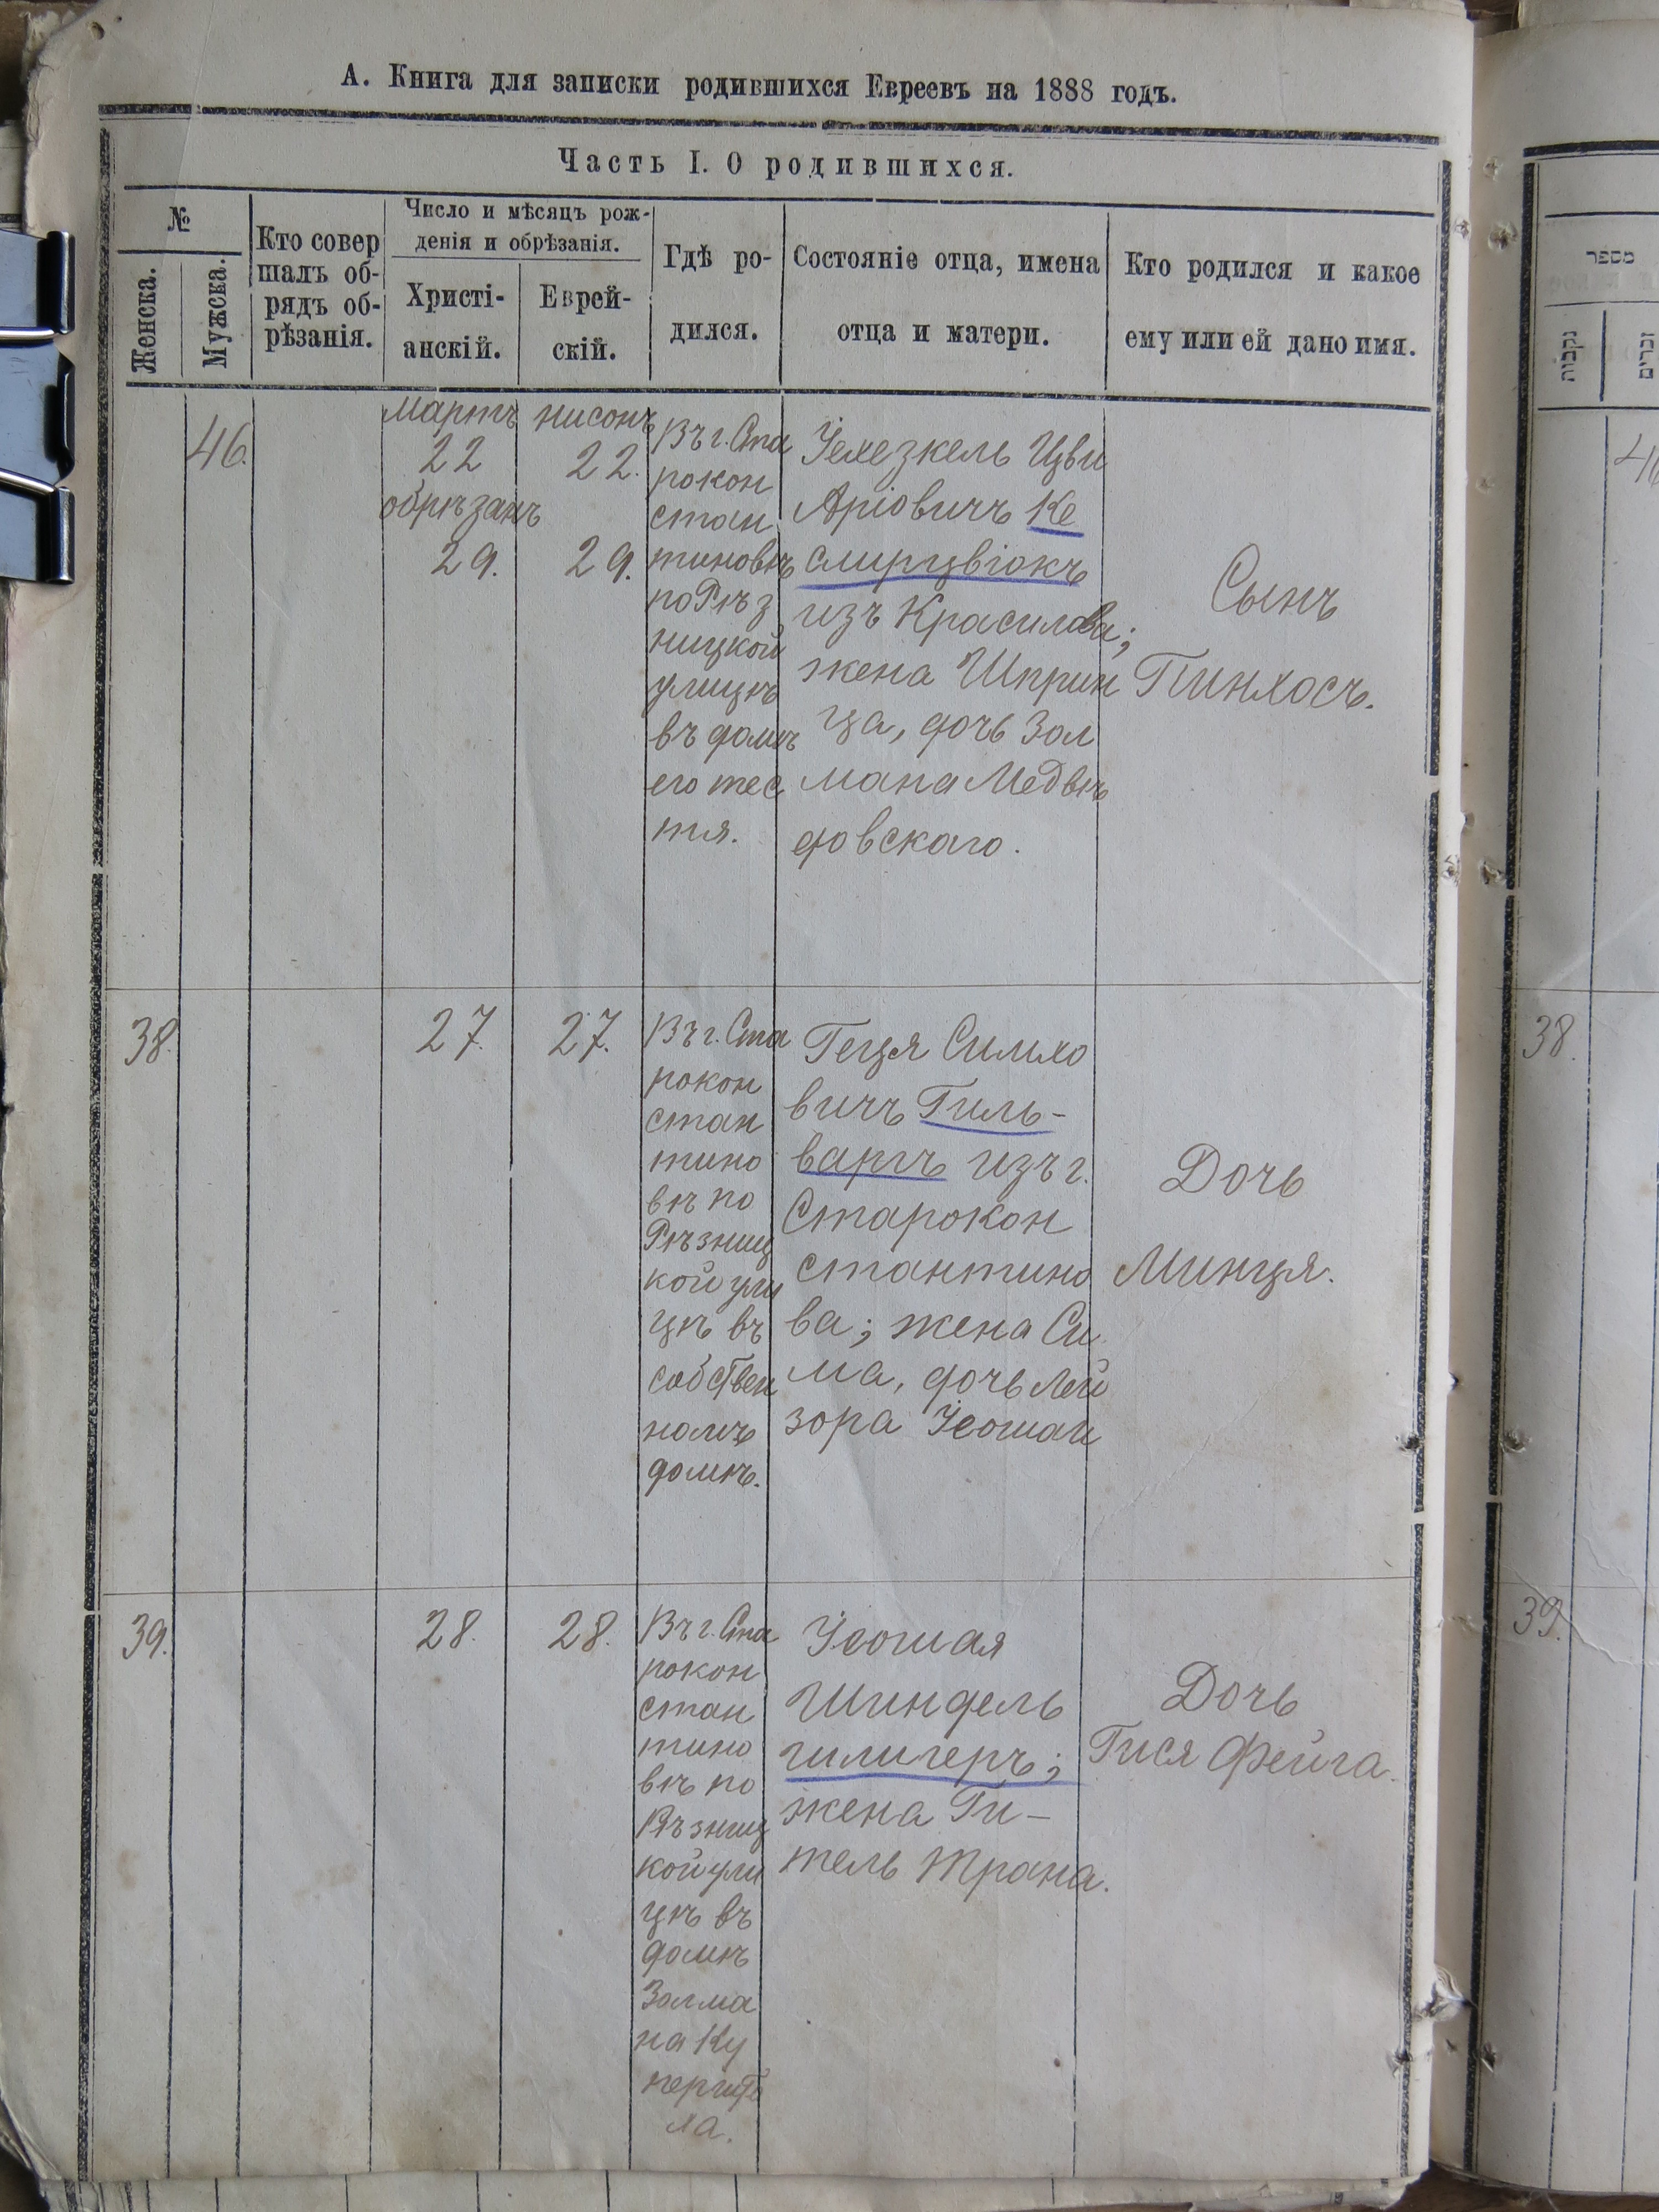 А. Книга для записки родившихся Евреевъ на 1888 годъ.
Часть I. О родившихся.
№
Женска.
Мужска.
Кто совер
шалъ об-
рядъ об-
рѣзанія.
Число и мѣсяцъ рож-
денія и обрѣзанія.
Христі-
анскій.
Еврей-
скій.
Гдѣ ро-
дился.
Состояніе отца, имена
отца и матери.
Кто родился и какое
ему или ей дано имя.
46.
мартъ
22
обрѣзанъ
29.
нисонъ
22.
29.
Въ г. Ста
рокон
стан
тиновѣ
по Рѣз
ницкой
улицѣ
въ домѣ
его тес
тя.
Іехезкель Цви
Аріовичъ Ке
слирцвіокъ
изъ Красилова;
жена Шприн
ца, дочь Зол
мана Медвѣ
довскаго.
Сынъ
Пинхосъ.
38.
27.
27.
Въ г. Ста
рокон
стан
тино
вѣ по
Рѣзниц
кой ули
цѣ въ
собствен
номъ
домѣ.
Геця Симхо
вичъ Гиль-
варгъ изъ г.
Старокон
стантино
ва; жена Си
ма, дочь Лей
зора
Дочь
Минця.
39.
28.
28.
Въ г. Ста
рокон
стан
тино
вѣ по
Рѣзниц
кой ули
цѣ въ
домѣ
Залма
на Ку
перште
ла.
Іеошая
Шиндель
гилигеръ;
жена Ги-
тель Трана.
Дочь
Гися Фейга.
מספר
נקבות
זכרים
46
38.
39.